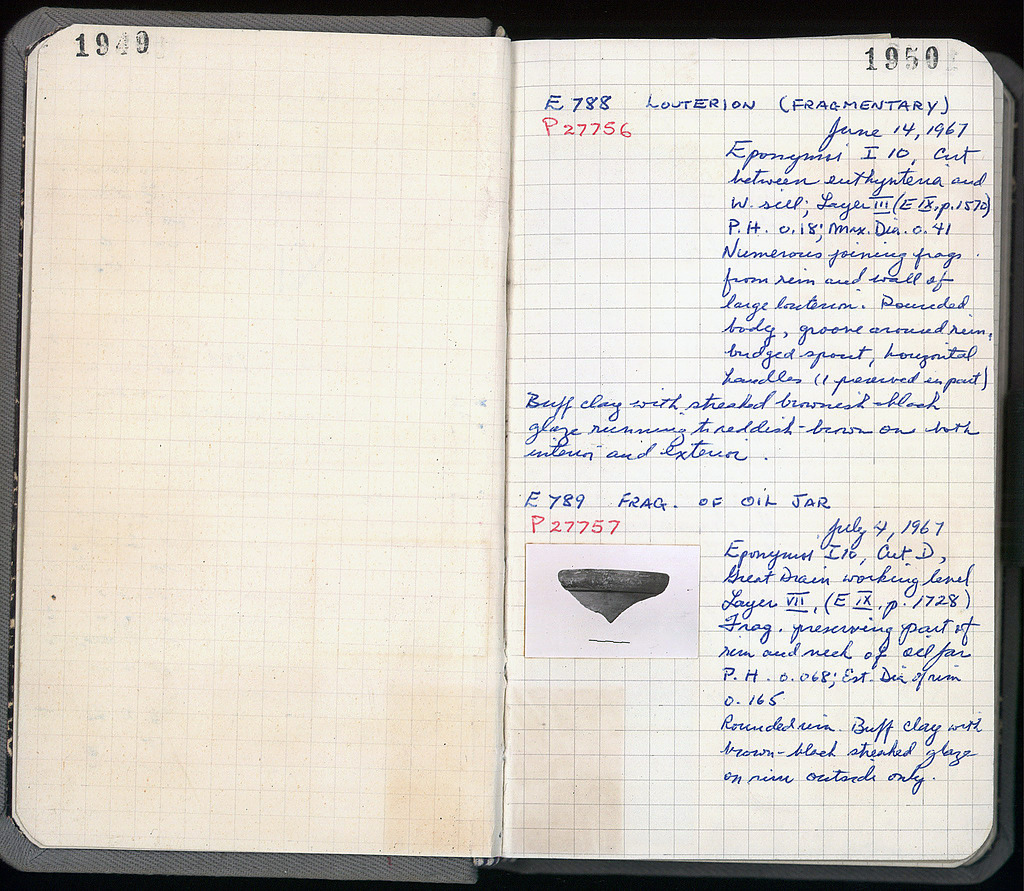 1949
1950
E 788 LOUTERION (FRAGMENTARY)
P 27756
June 14, 1967
Eponymoi I 10, Cut
between euthynteria and
W. sill; Layer III (E IX, p. 1570)
P.H. 0.18; Max. Dia. 0.41
Numerous joining frags.
from rim and wall of
large louterion. Rounded
body, groove around rim,
bridged spout, horizontal
handles (1 preserved in part)
Buff clay with streaked brownish-black
glaze running to reddish-brown on both
interior and exterior.
E 789 FRAG. OF OIL JAR
P 27757
July 4, 1967
Eponymoi I 10, Cut D,
Great Drain working level
Layer VII, (E IX, p. 1728)
Frag. preserving part of
rim and neck of oil jar
P.H. 0.068; Est. Dia. of rim
0.165
Rounded rim. Buff clay with
brown-black streaked glaze
on rim outside only.